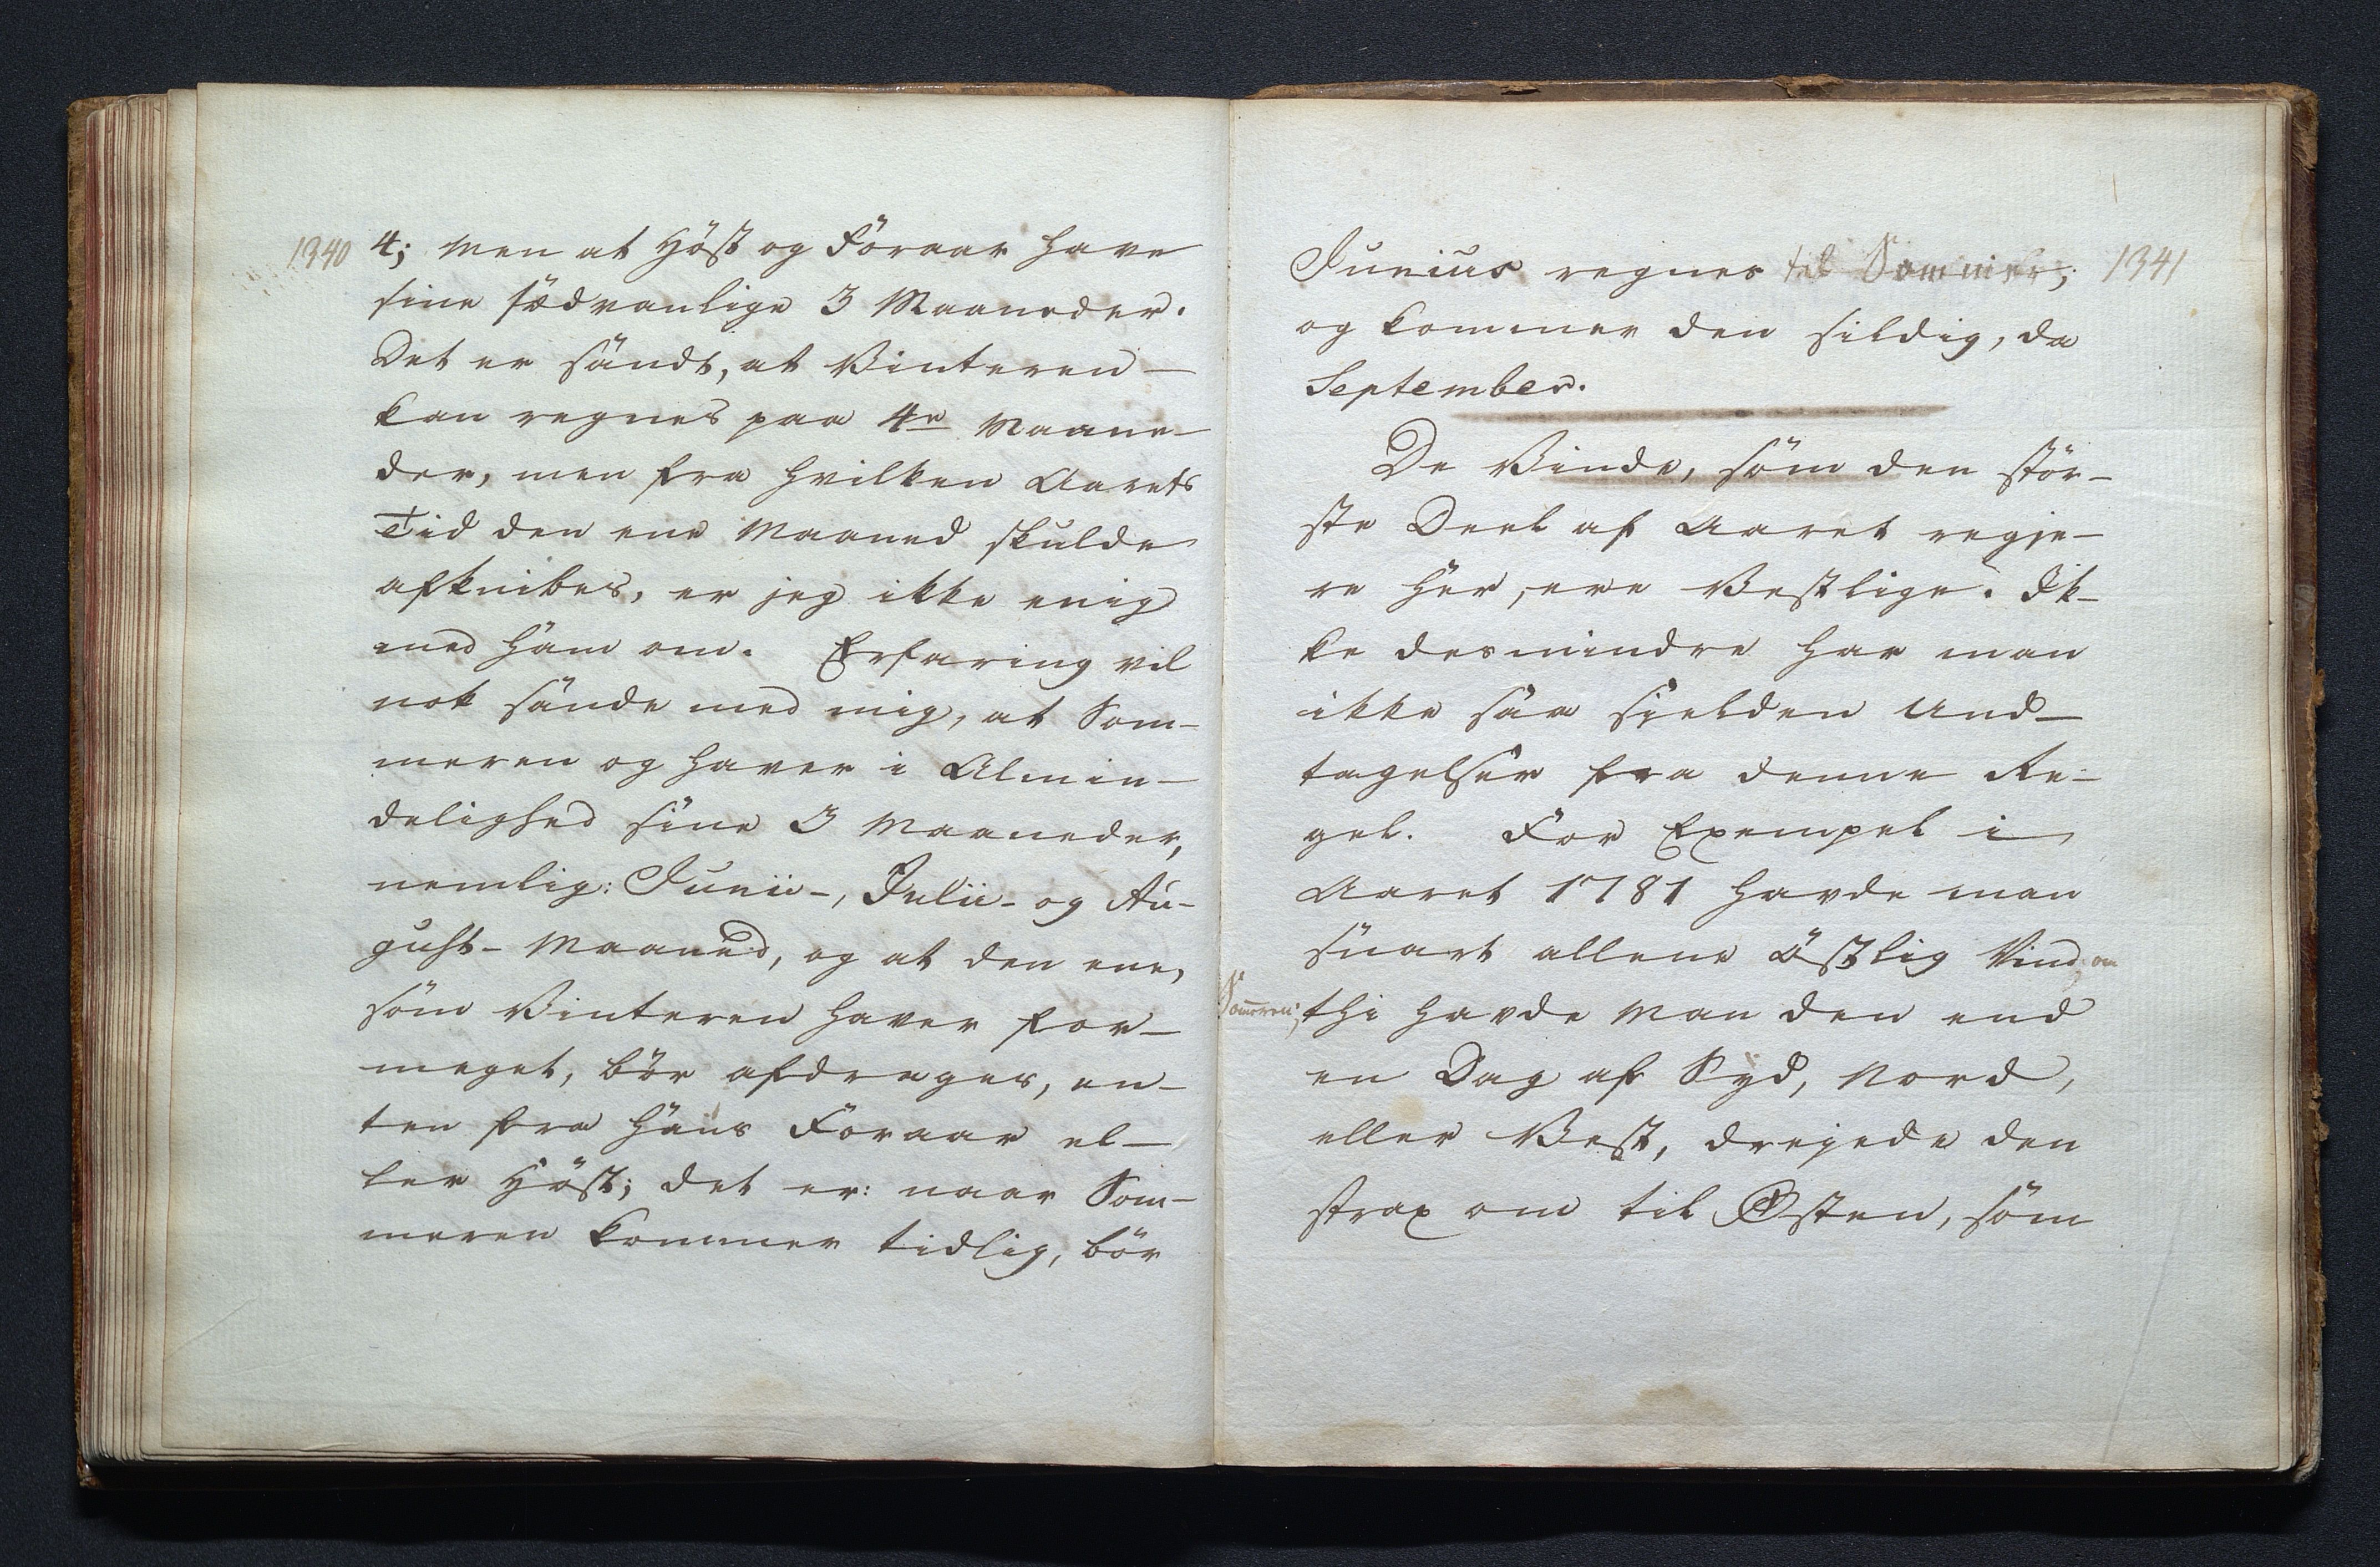 1340
4; men at Höst og Föraar have
sine sædvanlige 3 Maaneder.
Det er sandt, at Vinteren
kan regnes paa 4re Maane-
der, men fra hvilken Aarets
Tid den ene Maaned skulde
afknibes, er jeg ikke enig
med ham om. Erfaring vil
nok sande med mig, at Som-
meren og haver i Almin-
delighed sine 3 Maaneder,
nemlig: Junii-, Julii- og Au-
gust-Maaned, og at den ene,
som Vinteren haver for-
meget, bör afdrages, en-
ten fra hans Föraar el-
ler Höst; det er: naar Som-
meren kommer tidlig, bör
1341
Junius regnes til Sommer;
og kommer den sildig, da
September.
De Vinde, som den stör-
ste Deel af Aaret regje-
re her, ere Vestlige. Ik-
ke desmindre har man
ikke saa sjelden Und-
tagelser fra denne Re-
gel. For Exempel i
Aaret 1781 havde man
snart allene östlig Vind om
Sommeren;
thi havde man den end
en Dag af Syd, Nord,
eller Vest, drejede den
strax om til Østen, som